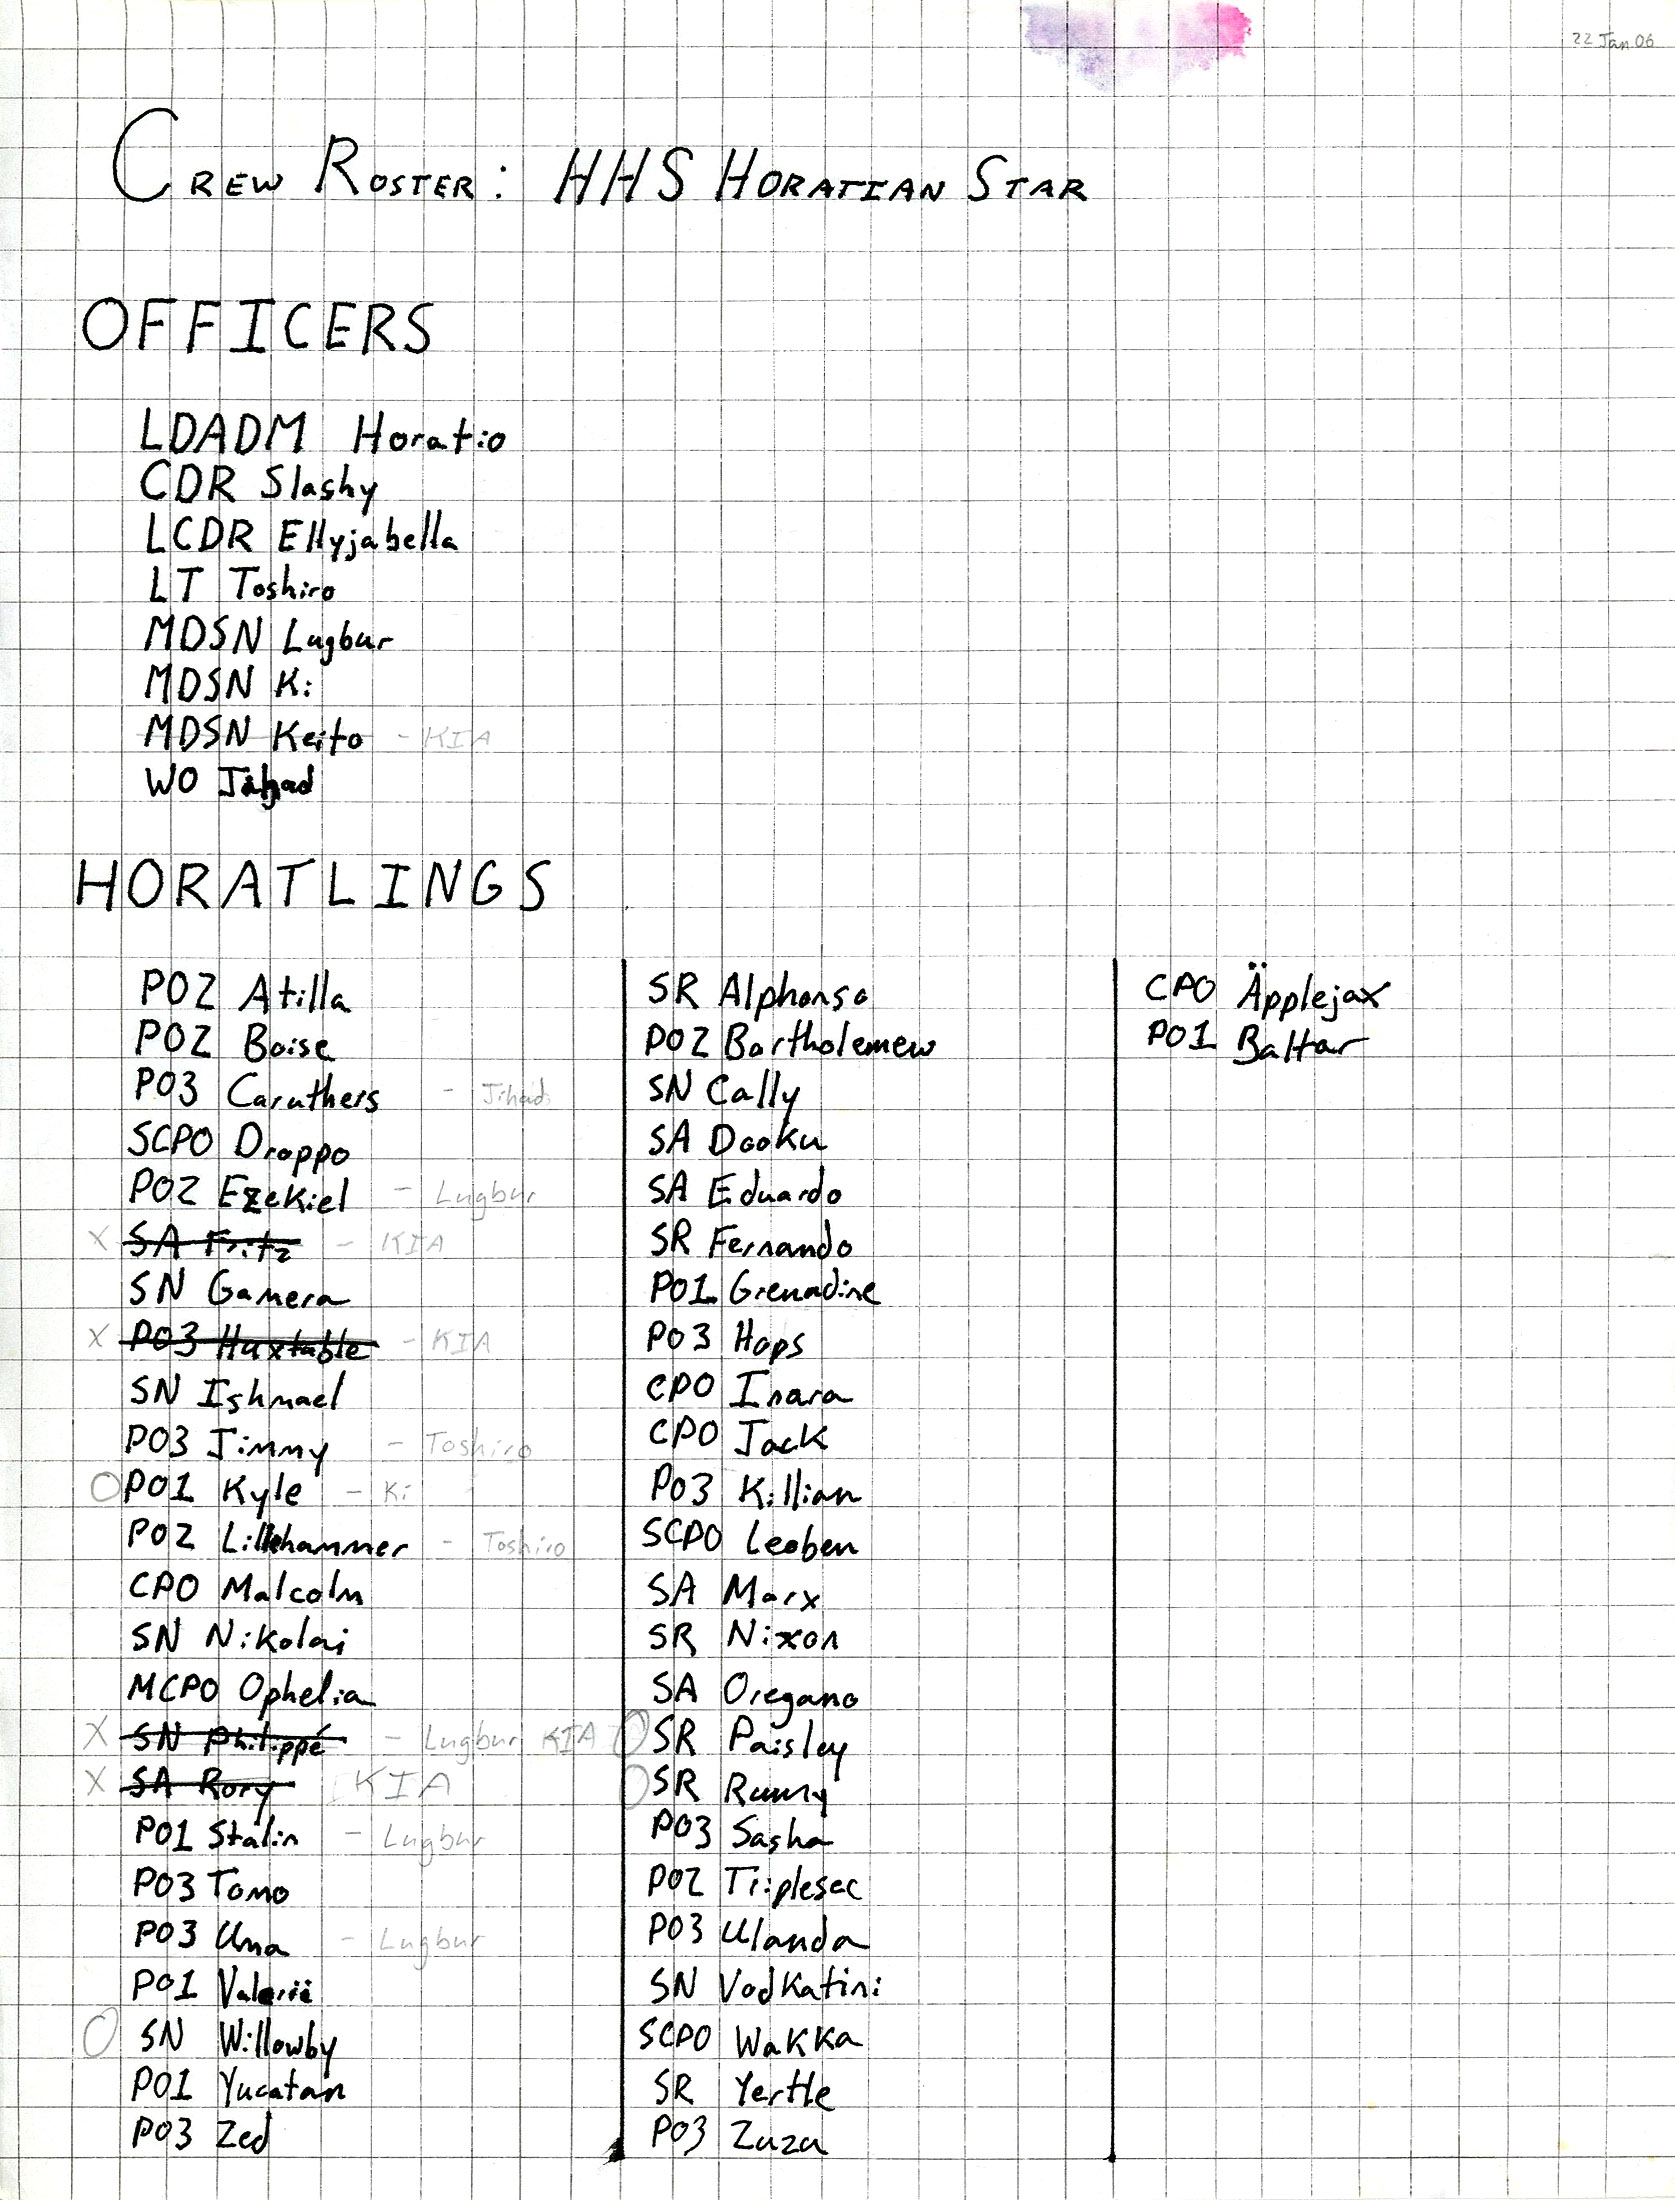 22 Jan 06
CREW ROSTER: HHS HORATIAN STAR
OFFICERS
LDADM Horatio
CDR Slashy
LCDR Ellyjabella
LT Toshiro
MDSN Lugbur
MDSN Ki
MDSN Keito - KIA
WO Jihad
HORATLINGS
PO2 Atilla
PO2 Boise
PO3 Caruthers - Jihad
SCPO Droppo
PO2 Ezekiel - Lugbur
X SA Fritz - KIA
SN Gamera
X PO3 Huxtable - KIA
SN Ishmael
PO3 Jimmy - Toshiro
PO1 Kyle - Ki
PO2 Lillehammer - Toshiro
CPO Malcolm
SN Nikolai
MCPO Ophelia
X SN Philippé - Lugbur KIA
X SA Rory KIA
PO1 Stalin - Lugbur
PO3 Tomo
PO3 Una - Lugbur
PO1 Valerii
SN Willowby
PO1 Yucatan
PO3 Zed
SR Alphonso
PO2 Bartholemew
SN Cally
SA Dooku
SA Eduardo
SR Fernando
PO1 Grenadine
PO3 Hops
CPO Inara
CPO Jack
PO3 Killian
SCPO Leoben
SA Marx
SR Nixon
SA Oregano
SR Paisley
SR Rummy
PO3 Sasha
PO2 Triplesec
PO3 Ulanda
SN Vodkatini
SCPO Wakka
SR Yertle
PO3 Zuzu
CPO Äpplejax
PO1 Baltar